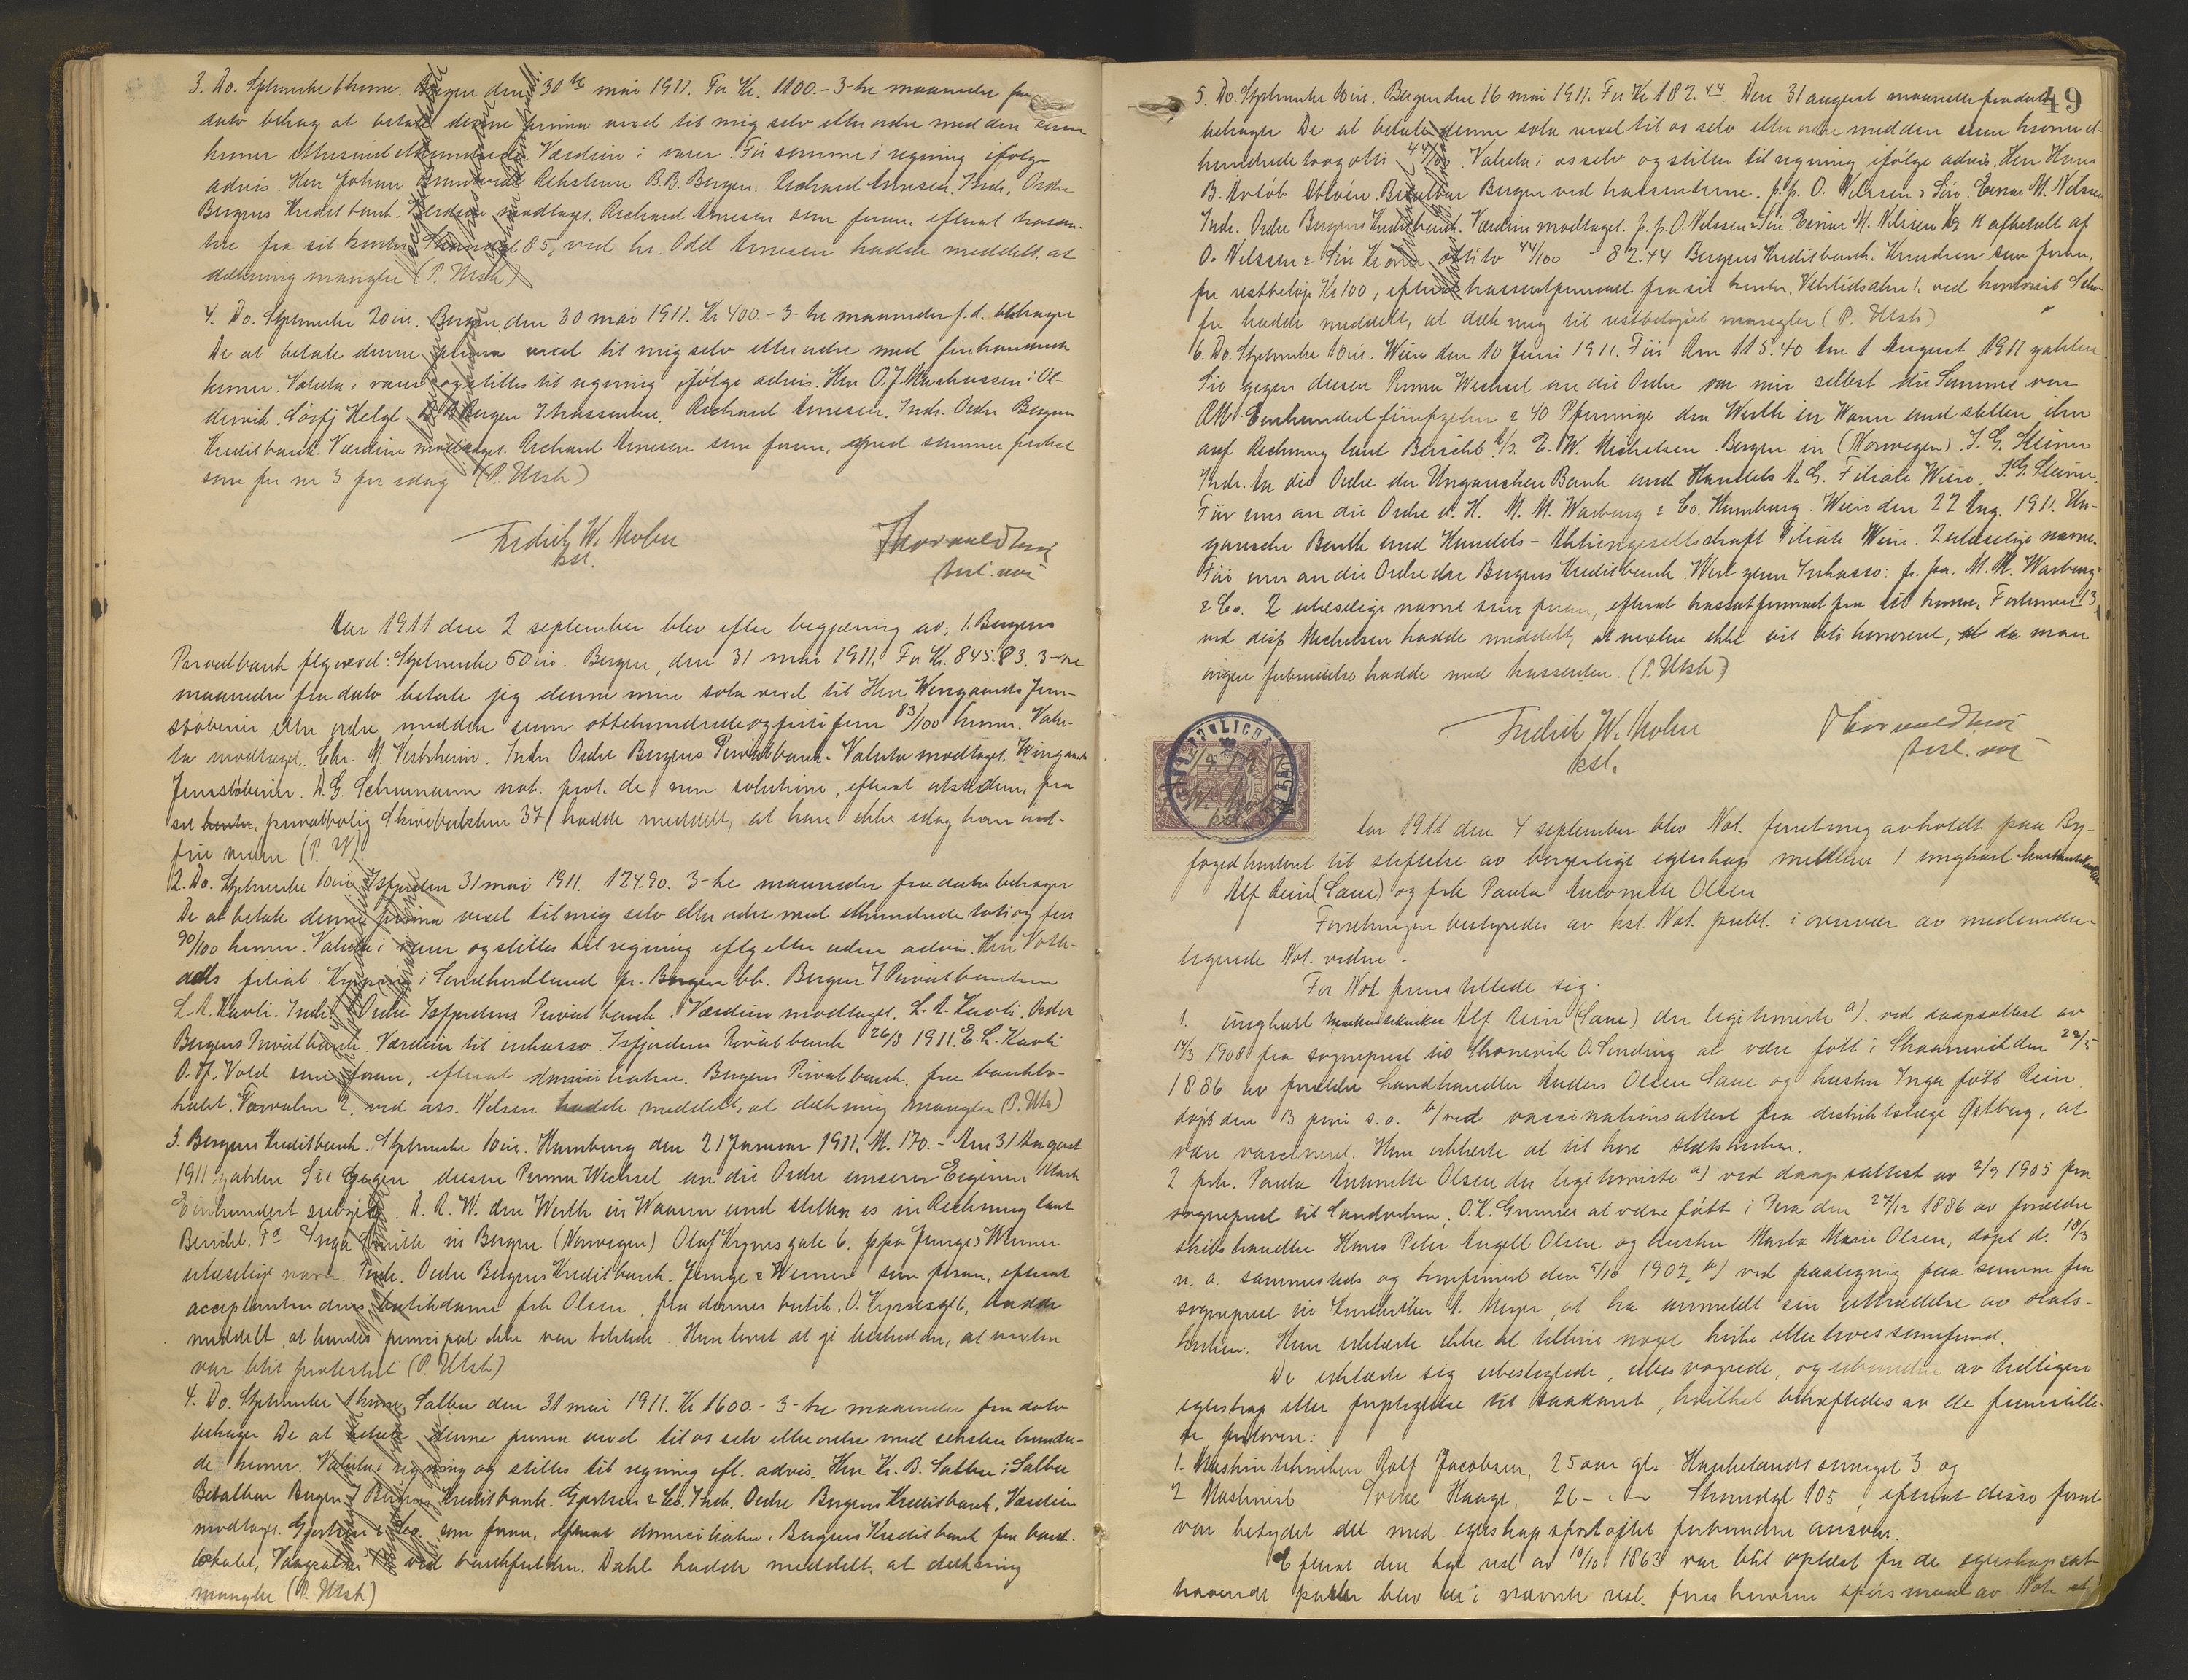 3. Do. Stplmerke 1 krone. Bergen den 30 te mai 1911. For Kr. 1100.- 3-tre maaneder fra
dato behag at betale denne prima vexel til mig selv eller ordre med den sum
kroner ettusindetthundrede Værdien i varer. Før samme i regning ifølge
advis. Herr Johan Rekstene B.B. Bergen. Richard Arnesen. Indr. Ordre
Bergens Kreditbank. Værdien modtaget. Richard Arnesen som foran, efterat trassen-
ten fra sit kontor Strandgt 85, ved hr. Odd Arnesen hadde meddelt, at
dækning mangler (P. Utsk)
4. Do. Stplmerke 20 öre. Bergen den 30 mai 1911. Kr 400.- 3-tre maaneder f. d. behager
De at betale denne prima vexel til mig selv eller ordre med firehundrede
kroner. Valuta i varer og stilles til regning ifølge advis. Herr O. J. Markussen i Øl-
Helgl. B. B. Bergen Trassenten. Richard Arnesen. Indr. Ordre Bergens
Kreditbank. Værdien modtaget. Richard Arnesen som foran, grund samme protest
som for nr 3 for idag (P. Utsk)
Fredrik W. Mohn
kst.
Thorvald
Aar 1911 den 2 september blev efter begjæring av: 1. Bergens
Privatbank flg vexel: Stplmerke 50 öre. Bergen, den 31 mai 1911. For Kr. 845.83. 3-tre
maaneder fra dato betale jeg denne min sola vexel til Herr Wingaards Jern-
støberier eller ordre med den sum ottehundredeogfirtifem 83/100 kroner. Valu-
ta modtaget. Chr. M. Vestrheim. Indr. Ordre Bergens Privatbank. Valuta modtaget. Wingaards
Jernstøberier. A. G. Schumann not. prot. de non solutione, efterat utstederen fra
sin kontor, privatbolig Skivebakken 37 hadde meddelt, at han ikke idag kan ind-
fri vexlen (P. U).
2. Do. Stplmerke 10 öre Isfjorden 31 mai 1911. 124.90. 3-tre maaneder fra dato behager
De at betale denne prima vexel til mig selv eller ordre med etthundrede toti og fire
90/100 kroner. Valuta i varer og stilles til regning eftg eller uden advis. Herr Voth-
dals filial. i Søndhordland pr. Bergen bb. Bergen I Privatbanken
L. A. Kavli. Indr. Ordre Isfjordens Privatbank. Værdien modtaget. L. A. Kavli. Ordre
Bergens Privatbank. Værdien til inkasso. Isfjordens Privatbank 26/8 1911. E. L. Kavli
O. H. Vold som foran, efterat domiciliaten. Bergens Privatbank, fra banklo-
kalet. Torvalm 2, ved ass. Nilsen hadde meddelt, at dækning mangler (P. Uts)
3. Bergens Kreditbank. Stplmerke 10 öre. Hamburg den 21 Januar 1911. M. 170.- Am 31 August
1911 zahlen Sie gegen diesen Prima Wechsel an die Ordre unserer Eigenen Mark
Einhundert siebzig. A. R. W. den Werth in Waaren und stellen es in Rechnung laut
Bericht. Fa Inga Smith in Bergen (Norwegen) Olaf Kyrres gate 6. pppa Junge & Werner
ulæselige navn. Indr. Ordre Bergens Kreditbank. Junge & Werner som foran, efterat
acceptanten dennes butikdame frk Olsen, fra dennes butik, O. Kyrresgt 6, hadde
meddelt, at hendes principal ikke var tilstede. Hun lovet at gi besked om, at vexlen
var blit protestert (P. Utsk)
4. Do. Stplmerke 1 krone. Salbu den 31 mai 1911. Kr 1600.- 3-tre maaneder fra dato
behager De at betale denne prima vexel til os selv eller ordre med seksten hundre-
de kroner. Valuta i regning og stilles til regning efl. advis. Herr Kr. B. Salbu i Salbu
Betalbar Bergen I Bergens Kreditbank. Gjertsen & Co. Indr. Ordre Bergens Kreditbank. Værdien
modtaget. Gjertsen & Co. som foran, efterat domiciliaten. Bergens Kreditbank fra bank-
lokalet, ved bankfuldm. Dahl hadde meddelt, at dækning
mangler (P. Utsk)
49
5. Do. Stplmerke 10 öre. Bergen den 16 mai 1911. For Kr 182.44. Den 31 august maaneder fradato
behager De at betale denne sola vexel til os selv eller ordre med den sum kroner et-
hundrede toogotti 44/100. Valuta i os selv og stilles til regning ifølge advis. Herr Hans
B. Betalbar Bergen ved trassenterne. p. p. O. Nilssen & Søn. Einar M. Nilssen
Indr. Ordre Bergens Kreditbank. Værdien modtaget. p. p. O. Nilssen & Søn. Einar M. Nilssen afbetalt af
O. Nilssen & Søn Kroner ottito 44/100 - 82.44 Bergens Kreditbank. som foran,
for restbeløp Kr 100, efterat trassent firmaet fra sit kontor, ved kontorist
fra hadde meddelt, at dækning til restbeløpet mangler (P. Utsk)
6. Do. Stplmerke 10 öre. Wien den 10 Juni 1911. Für Rm 115.40 Am 1 August 1911 zahlen
Sie gegen diesen Prima Wechsel an die Ordre von mir selbst die Summe von
RM Einhundertfünfzehn & 40 Pfennige den Werth in Waren und stellen ihn
auf Rechnung laut Bericht. E. W. Michelsen. Bergen in (Norwegen). J. G. Steiner
Indr. An die Ordre der Ungarischen Bank und Handels A. G. Filiale Wien. J. G. Steiner.
Für uns an die Ordre d. H. M. M. Warburg & Co. Hamburg. Wien den 22 Aug. 1911. Un-
garische Bank und Handels-Aktiengesellschaft Filiale Wien. 2 ulæselige navne.
Für uns an die Ordre der Bergens Kreditbank. Wert zum Inkasso: p. pa. M. M. Warburg
& Co. 2 ulæselige navne som foran, efterat trassatfirmaet fra sit kontor, Fortunen 3
ved disp Michelsen hadde meddelt, at vexlen ikke vil bli honoreret, da man
ingen forbindelse hadde med trassenten. (P. Utsk)
Fredrik W. Mohn
kst.
Thorvald
Aar 1911 den 4 september blev Not. forretning avholdt paa By-
fogedkontoret til stiftelse av borgerlige egteskap mellem 1 ungkarl
Alf Rein (Laue) og frk Paula Antonette Olsen
Forretningen bestyredes av kst. Not. publ. i overvær av medunder-
tegnede Not. vidne.
For Not fremstillede sig.
1. ungkarl Maskintekniker Alf Rein (Laue) der legitimerte a). ved daapsattest av
14/3 1908 fra sogneprest til Skonevik O. Sending at være født i Skaanevik den 22/5
1886 av forældre Landhandler Anders Olsen Laue og hustru Inga født Rein
døpt den 13 juni s. a. b/ ved vaccinationsattest fra distriktslæge Østberg, at
være vaccineret. Han erklærte at til høre statskirken.
2 frk. Paula Antonette Olsen der legitimerte a) ved daapsattest av 2/9 1905 fra
sogneprest til Sandviken, O. K. Grimnes at være født i den 27/12 1886 av forældre
skibshandler Hans Peter Angell Olsen og hustru Marta Marie Olsen, døpt d. 18/3
n. a. sammesteds og konfirmert den 5/10 1902, b) ved paategning paa samme fra
sogneprest til A. Meyer, at ha anmeldt sin uttrædelse av stats-
kirken. Hun erklærte ikke at tilhøre noget kirke eller trossamfund.
De erklærte sig ubeslegtede, ubesvogrede, og ubundne av tidligere
egteskap eller forpligtelse til saadant, hvilket bekræftedes av de fremstille-
de forlovere:
1. Maskintekniker Rolf Jacobsen, 25 aar gl. 3 og
2 Maskinist Hauge, 26 - " - Strandgt 105, efterat disse forut
var betydet det med egteskapsforløftet forbundne ansvar.
Efterat den kgl res av 10/10 1863 var blit oplæst for de egteskapsat-
traaende parter blev de i nævnte res. foreskrevne spørsmaal av Not.